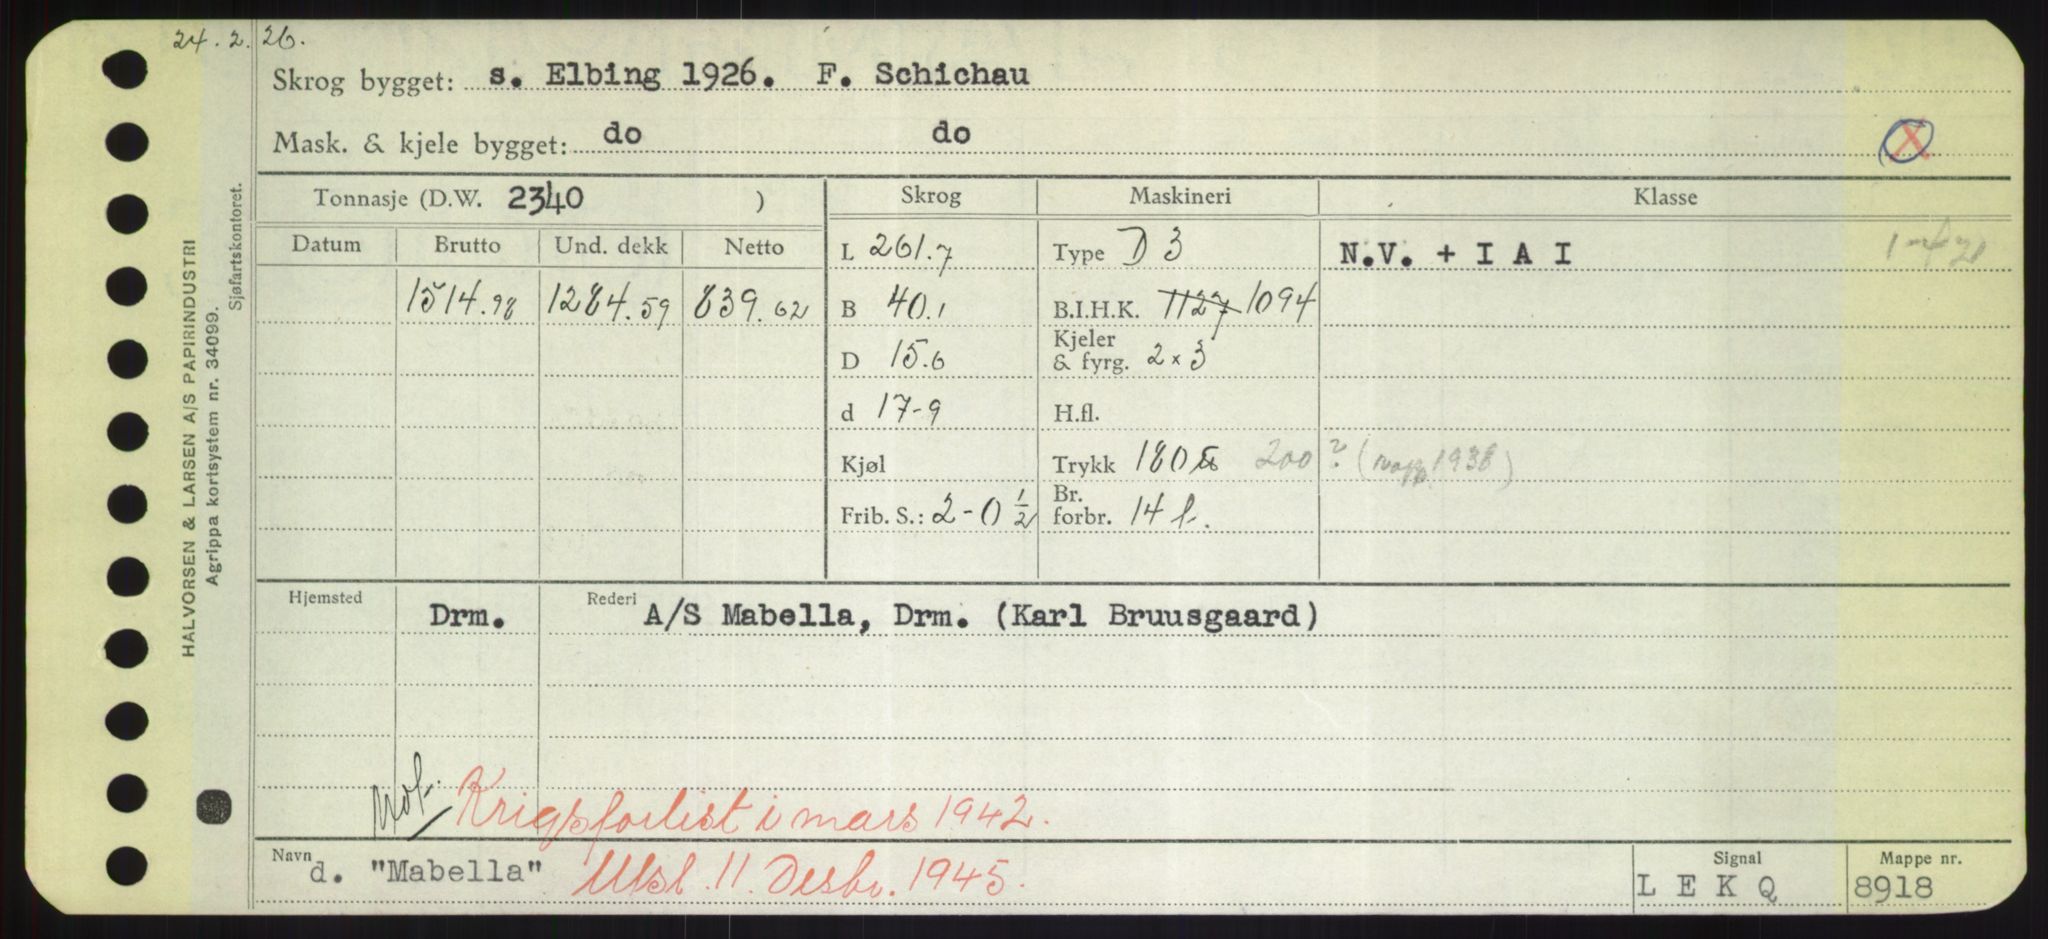 24.2.26.
Skrog bygget: s. Elbing 1926. F. Schichau
Mask. & kjele bygget: do do
X
Tonnasje (D.W. 2340 ) Skrog Maskineri Klasse
Datum Brutto Und. dekk Netto L 261.7 Type D 3 N.V. + I A I
1514.98 1284.59 839.62 B 40.1 B.I.H.K. 1127 1094
D 15.6 Kjeler & fyrg. 2 x 3
d 17-9 H.fl.
Kjøl Trykk 180 200 ? ( 1938)
Frib. S.: 2-0 1/2 Br. forbr. 14 t.
Hjemsted Drm. Rederi A/S Mabella, Drm. (Karl Bruusgaard)
Krigsforlist i mars 1942.
Navn d. "Mabella" Utsl. 11. Desbr. 1945. Signal L E K Q Mappe nr. 8918
HALVORSEN & LARSEN A/S PAPIRINDUSTRI
Agrippa kortsystem nr. 34099.
Sjøfartskontoret.